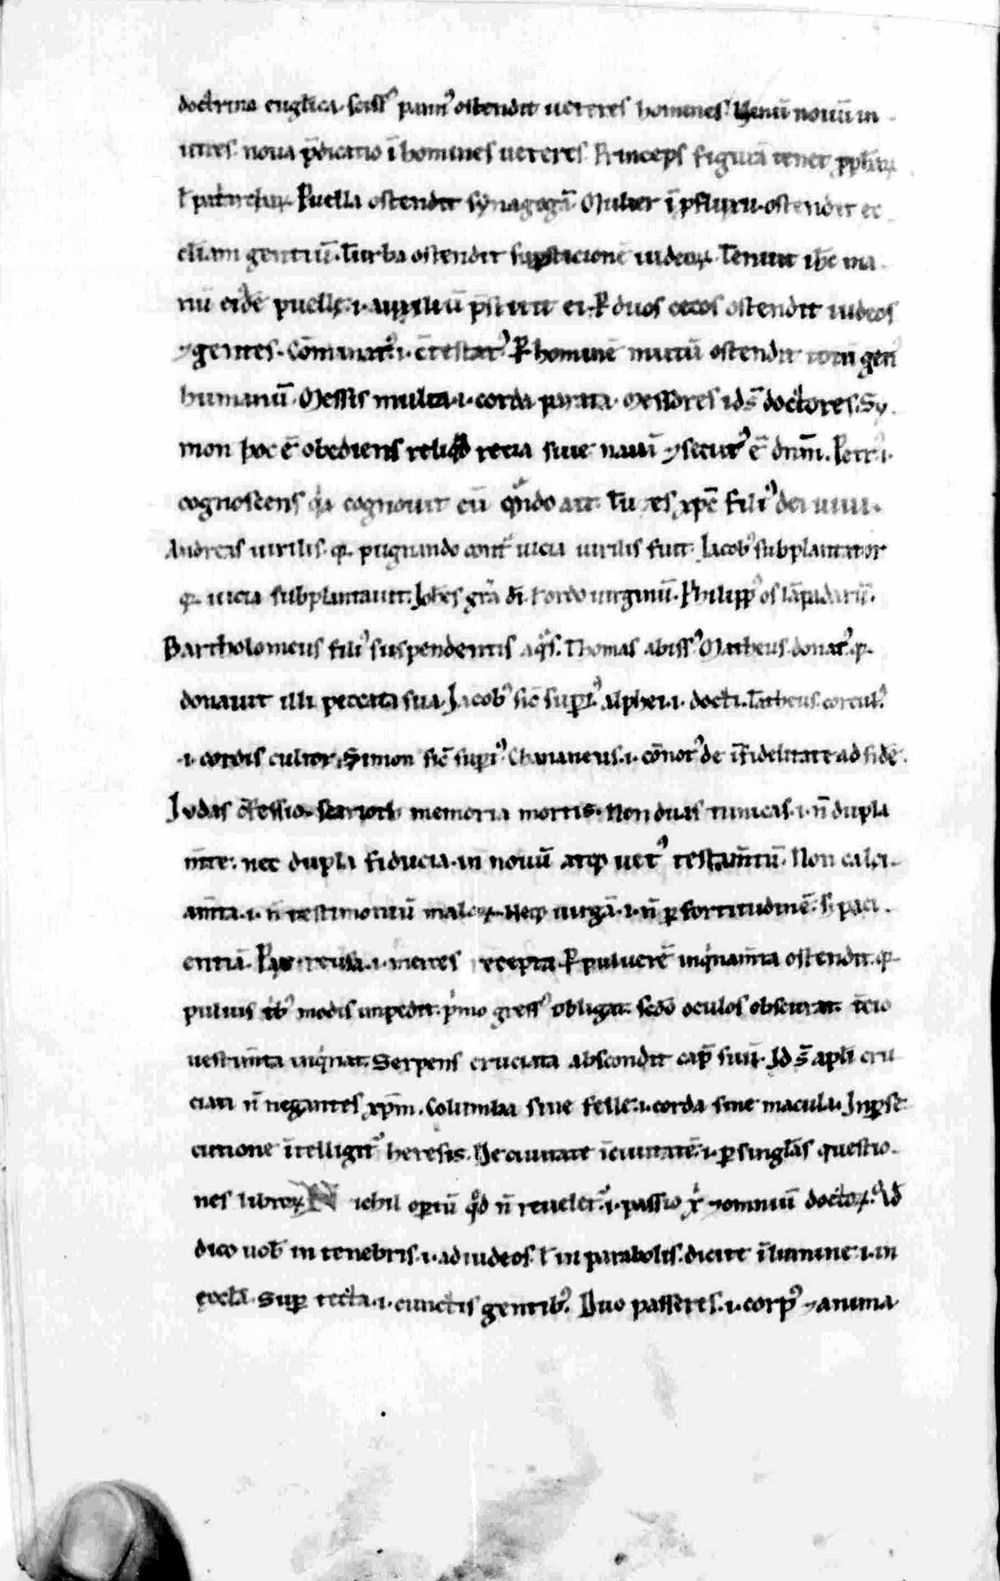 doctrina euglica. sciss᾽ pann᾽ ostendit ueteres homines. Uinū nouū in
utres. noua p̄dicatio ī homines ueteres. Princeps figurā tenet ꝓph̄aꝝ
ł pat̄rcharꝝ. Puella ostendit synagogā. Mulier ī ꝓfluuiu. ostendit ec
cl̄iam gentiū. Turba ostendit suꝑsticionē iudeoꝝ. Tenuit ih̄c ma
nū eidē puellę .i. auxiliū p̄stitit ei. P̱ duos cecos ostendit iudeos
⁊ gentes. Cōminat᾽ .i. ꝯtestat᾽. P̱ hominē mutū ostendit totū gen᾽
humanū. Messis multa .i. corda parata. Messores id s̄ doctores. Sy
mon hoc ē obediens reliqͥd recia siue nauī ⁊ secut᾽ ē dn̄m. Petr᾽ .i.
cognoscens qͥa cognouit eū qͣndo ait. Tu es xp̄c fili᾽ dei uiui.
Andreas uirilis. qͥ pugnando contͣ uicia uirilis fuit. Iacob᾽ subplantator
qͥ uicia subplantauit. Ioh̄es gr̄a dī. ł ordo uirginū. Philipp᾽ os lāpadarū.
Bartholomeus fili᾽ suspendentis aqͣs. Thomas abiss᾽. Matheus donat᾽. qͥ
donauit illi peccata sua. Iacob᾽ sic̄ supi᾽. alphei .i. docti. Tatheus corcul᾽.
.i. cordis cultor. Simon sic̄ supi᾽. Chananeus .i. cōnot᾽ de īfidelitate ad fidē.
Iudas ꝯfessio. scarioth memoria mortis. Non duas tunicas .i. n̄ dupla
m̄te. nec dupla fiducia. in nouū atqꝫ uet᾽ testam̄tū. Non calci
am̄ta .i. n̄ testimoniū maloꝝ. Neqꝫ uirgā .i. n̄ ꝑ fortitudinē. s; paci
entiā. reuersa .i. mentes recepta. P̱ puluerē inqͥnam̄ta ostendit. qͥ
puluis tͥb᾽ modis inpedit. pͥmo gress᾽ obligat. scd̄o oculos obscurat. t̄cio
uestim̄ta inqͥnat. Serpens cruciata abscondit cap̄ suū. Id s̄ apl̄i cru
ciati n̄ negantes xp̄m. Columba sine felle .i. corda sine macula. In ꝑse
cutione ītelligit᾽ heresis. De ciuitate ī ciuitatē .i. ꝑ singl̄as questio
nes libroꝝ. Nichil optū qͦd n̄ reuelet᾽ .i. passio xͥ ⁊ omniū doctoꝝ. Qͦd
dico uob᾽ in tenebris .i. ad iudeos. ł in parabolis. dicite ī lumine .i. in
eccl̄a. Sup tecta .i. cunctis gentib᾽. Duo passeres .i. corp᾽ ⁊ anima